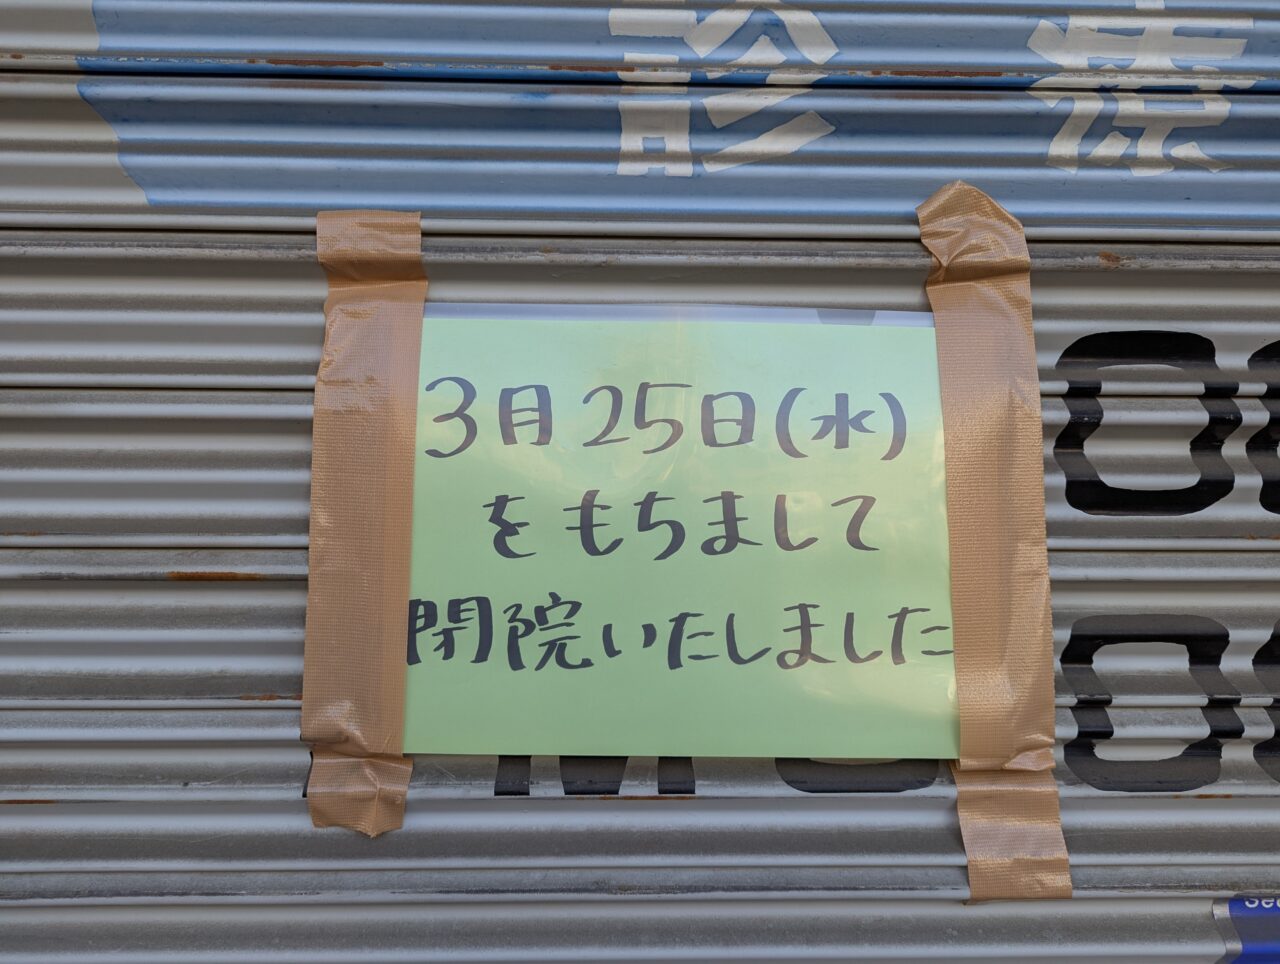 診療
3月25日(水)
をもちまして
閉院いたしました